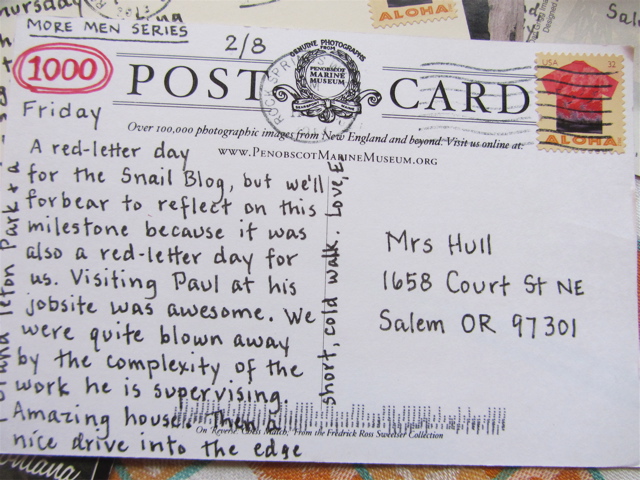 hursday
ALOHA!
Sale
MORE MEN SERIES
2/8
1000
POST CARD
GENUINE PHOTOGRAPHS
FROM
PENOBSCOT
MARINE
MUSEUM
USA 32
ALOHA!
Friday
Over 100,000 photographic images from New England and beyond. Visit us online at:
www.PenobscotMarineMuseum.org
A red-letter day
for the Snail Blog, but we'll
forbear to reflect on this
milestone because it was
also a red-letter day for
us. Visiting Paul at his
jobsite was awesome. We
were quite blown away
by the complexity of the
work he is supervising.
Amazing house. Then a
nice drive into the edge
leton Park + a
short, cold walk. Love, E
Mrs Hull
1658 Court St NE
Salem OR 97301
On Reverse: Chess Match, From the Fredrick Ross Sweetser Collection